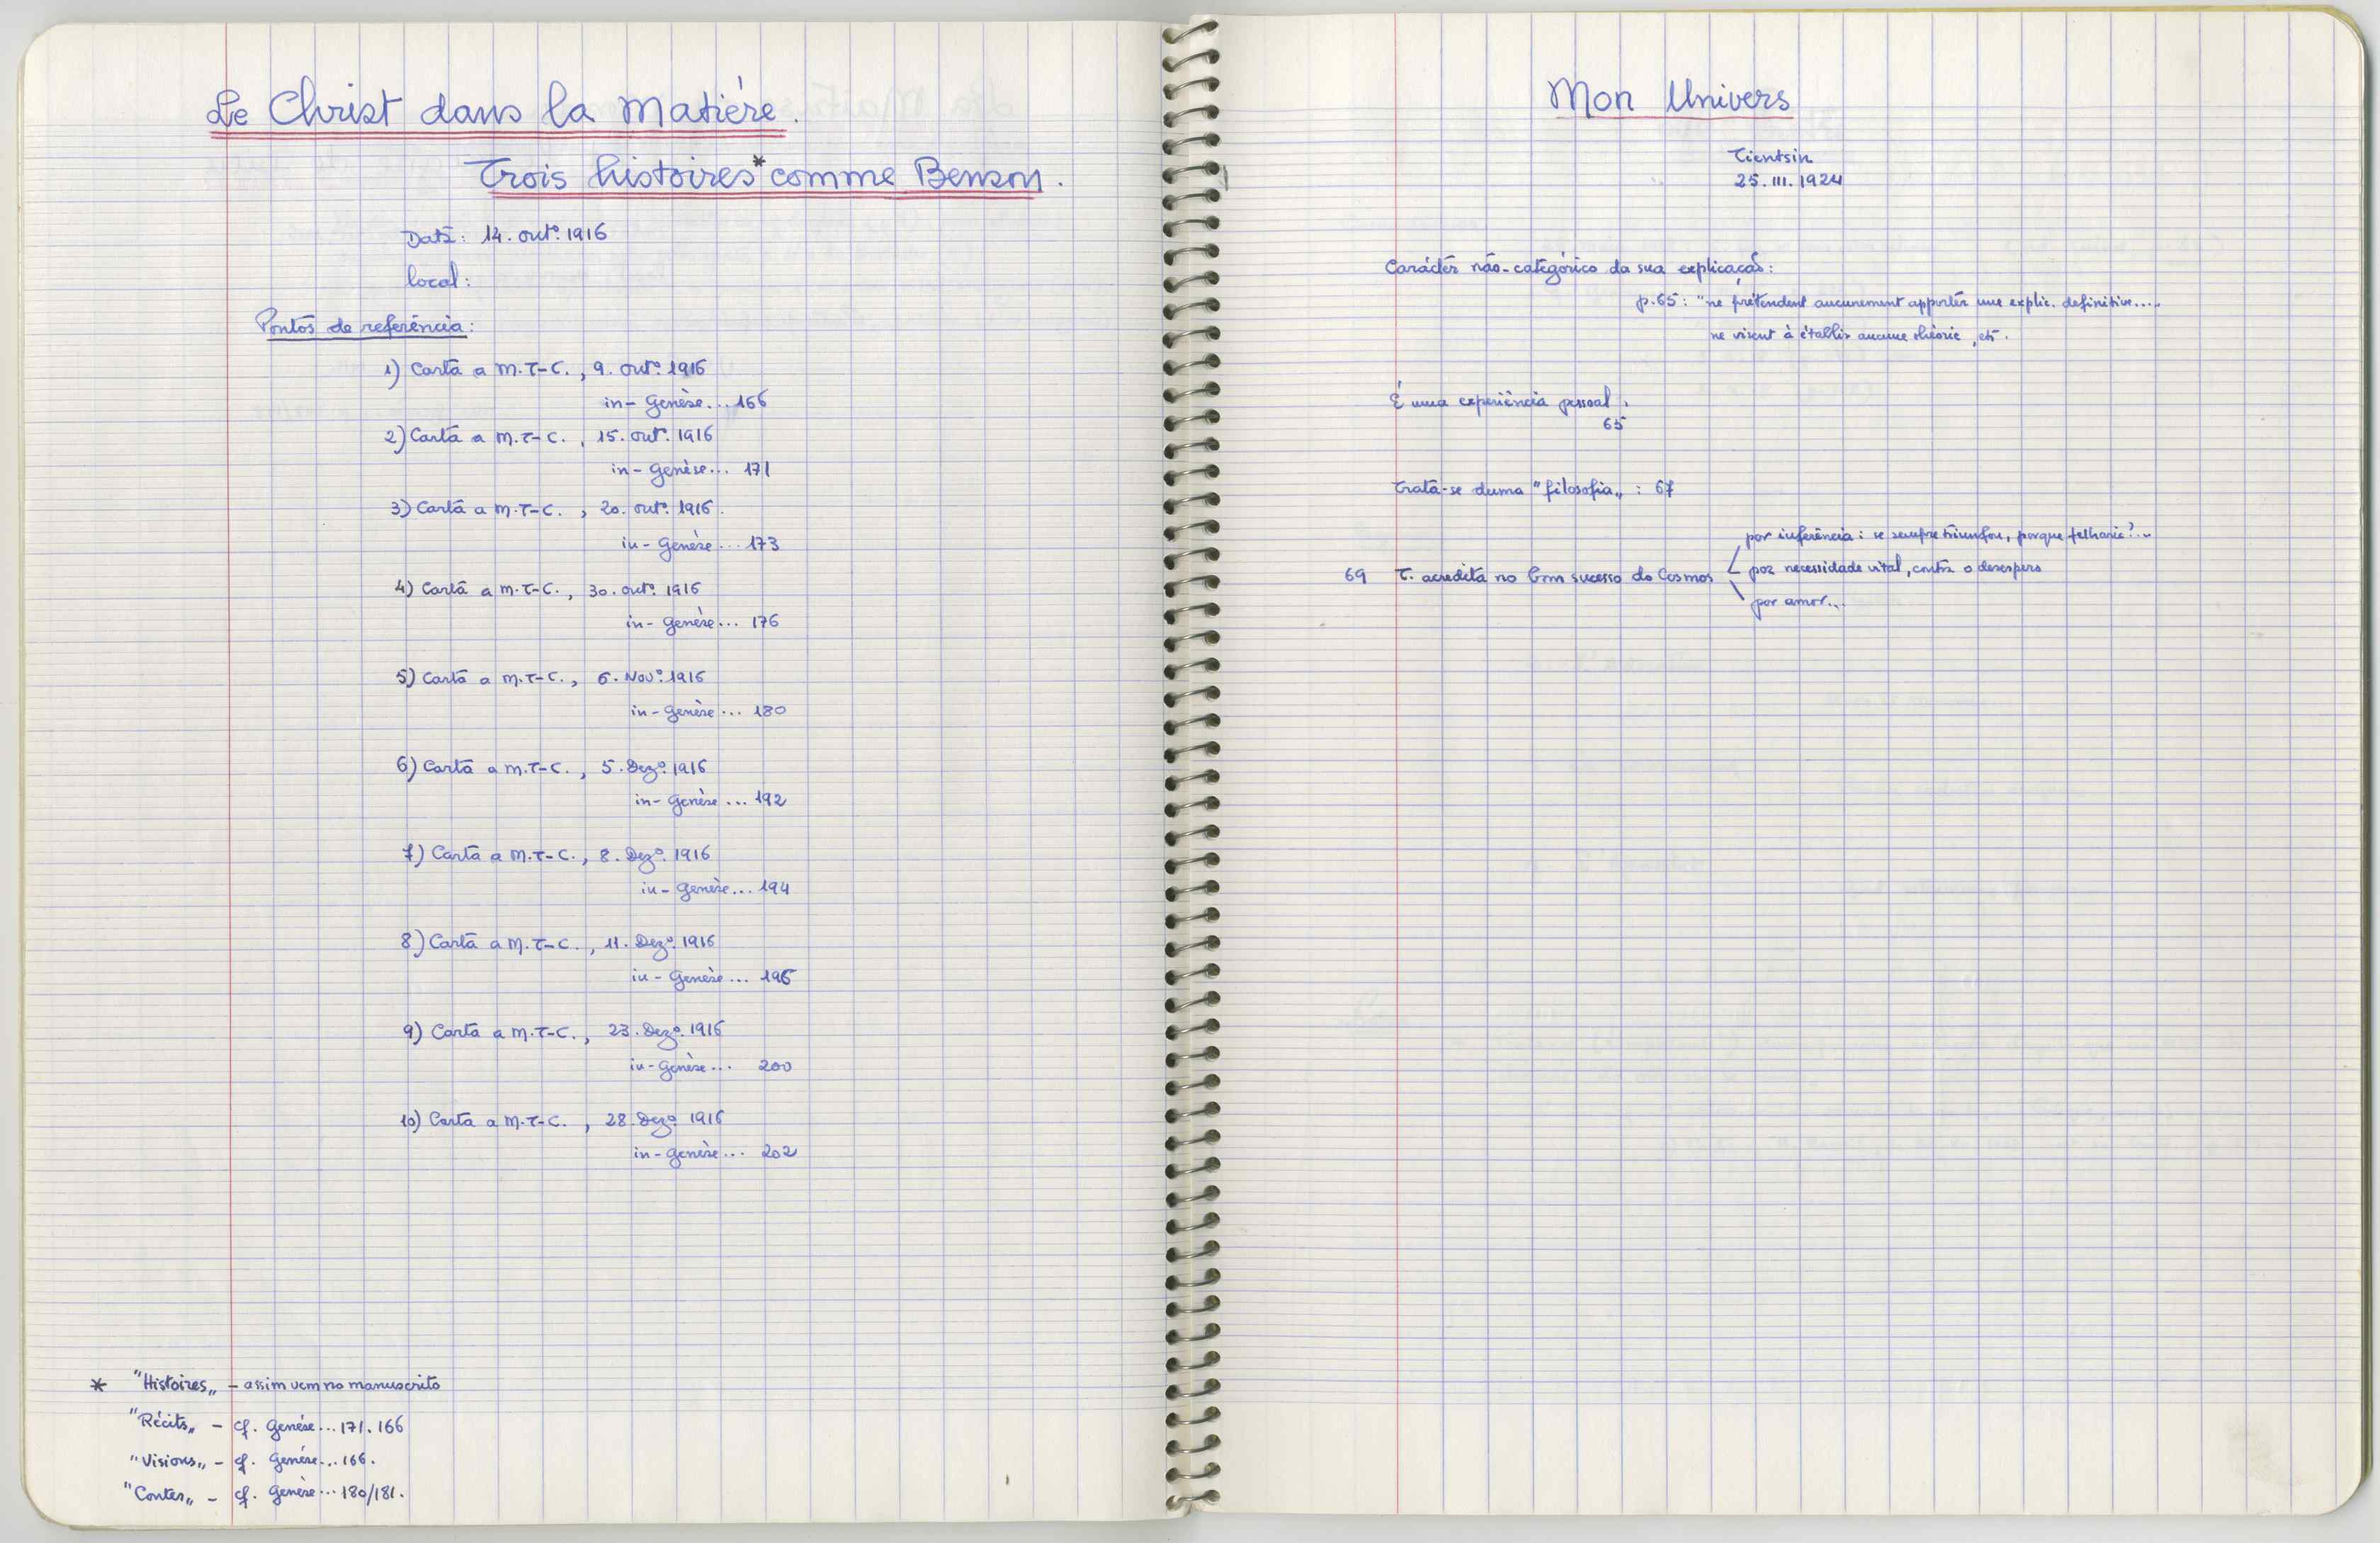 Le Christ dans la Matière.
Trois histoires* comme Benson.
Data: 14. outº. 1916
local:
Pontos de referência:
1) Carta a M.T-C., 9. outº. 1916
in-Genèse... 166
2) Carta a M.T-C., 15. outº. 1916
in-Genèse... 171
3) Carta a M.T-C., 20. outº. 1916.
in-Genèse... 173
4) Carta a M.T-C., 30. outº. 1916
in-Genèse... 176
5) Carta a M.T-C., 6. Novº. 1916
in-Genèse... 180
6) Carta a M.T-C., 5. Dezº. 1916
in-Genèse... 192
7) Carta a M.T-C., 8. Dezº. 1916
in-Genèse... 194
8) Carta a M.T-C., 11. Dezº. 1916
in-Genèse... 195
9) Carta a M.T-C., 23. Dezº. 1916
in-Genèse... 200
10) Carta a M.T-C., 28. Dezº. 1916
in-Genèse... 202
* "Histoires„ - assim vem no manuscrito
"Récits„ - cf. Genèse... 171. 166
"Visions„ - cf. Genèse... 166.
"Contes„ - cf. Genèse... 180/181.
Mon Univers
Tientsin
25. III. 1924
Carácter não-categórico da sua explicação:
p.65: "ne prétendent aucunement apporter une explic. definitive.....
ne visent à établir aucune théorie, etc.
É uma experiência pessoal.
65
Trata-se duma "filosofia„ : 67
por inferência: se sempre triunfou, porque falharia?...
69 T. acredita no bom sucesso do Cosmos
por necessidade vital, contra o desespero
por amor...